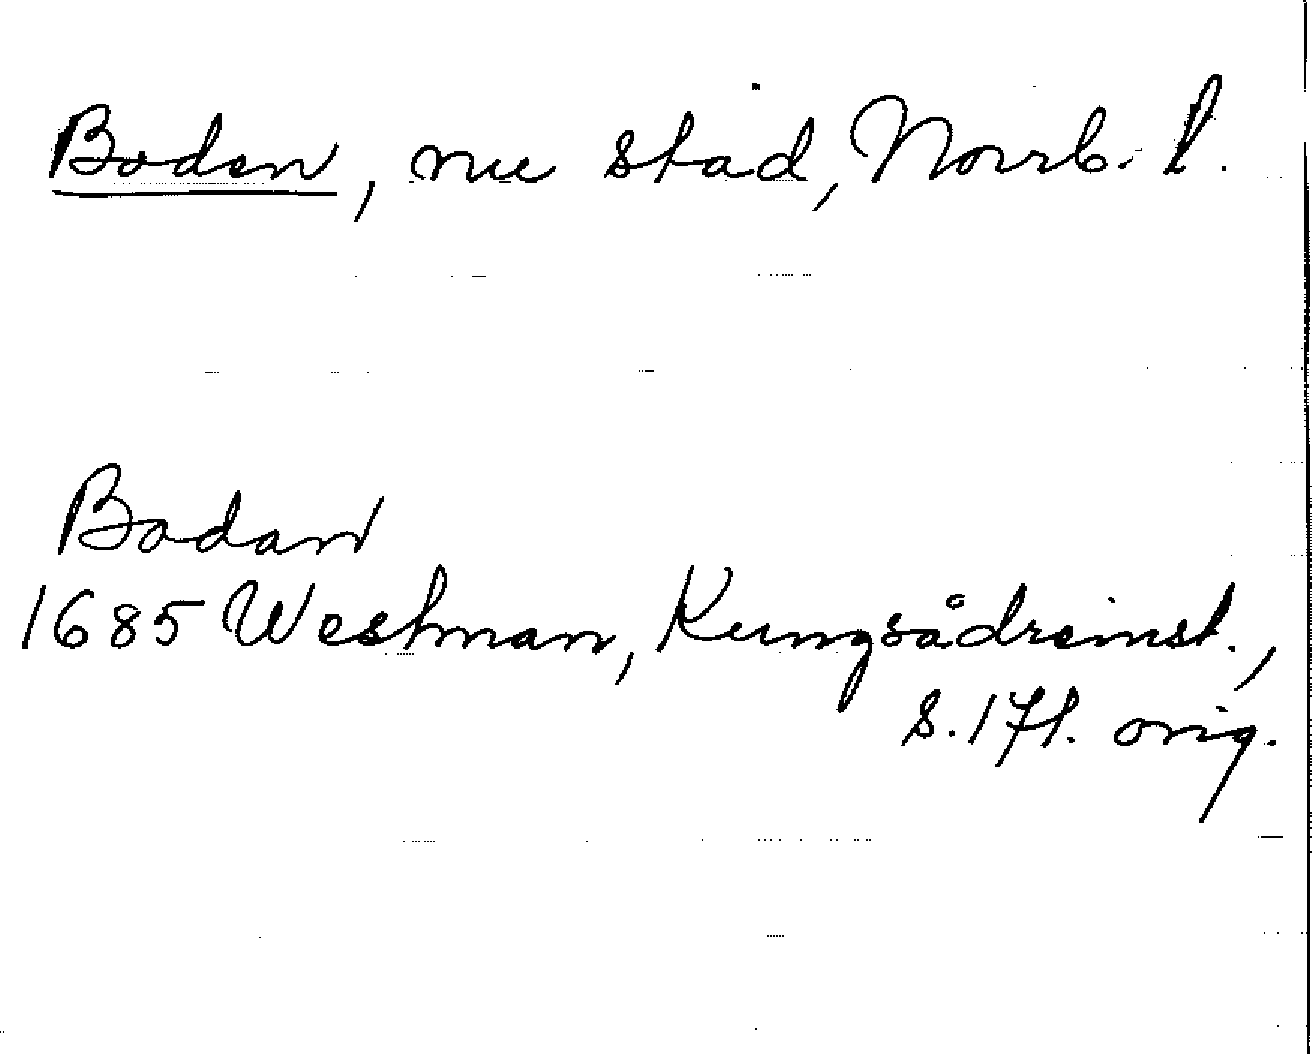 Boden, nu stad, Norrb. l.
Bodan
1685 Westman, Kungsådreinst.,
s. 17f. orig.